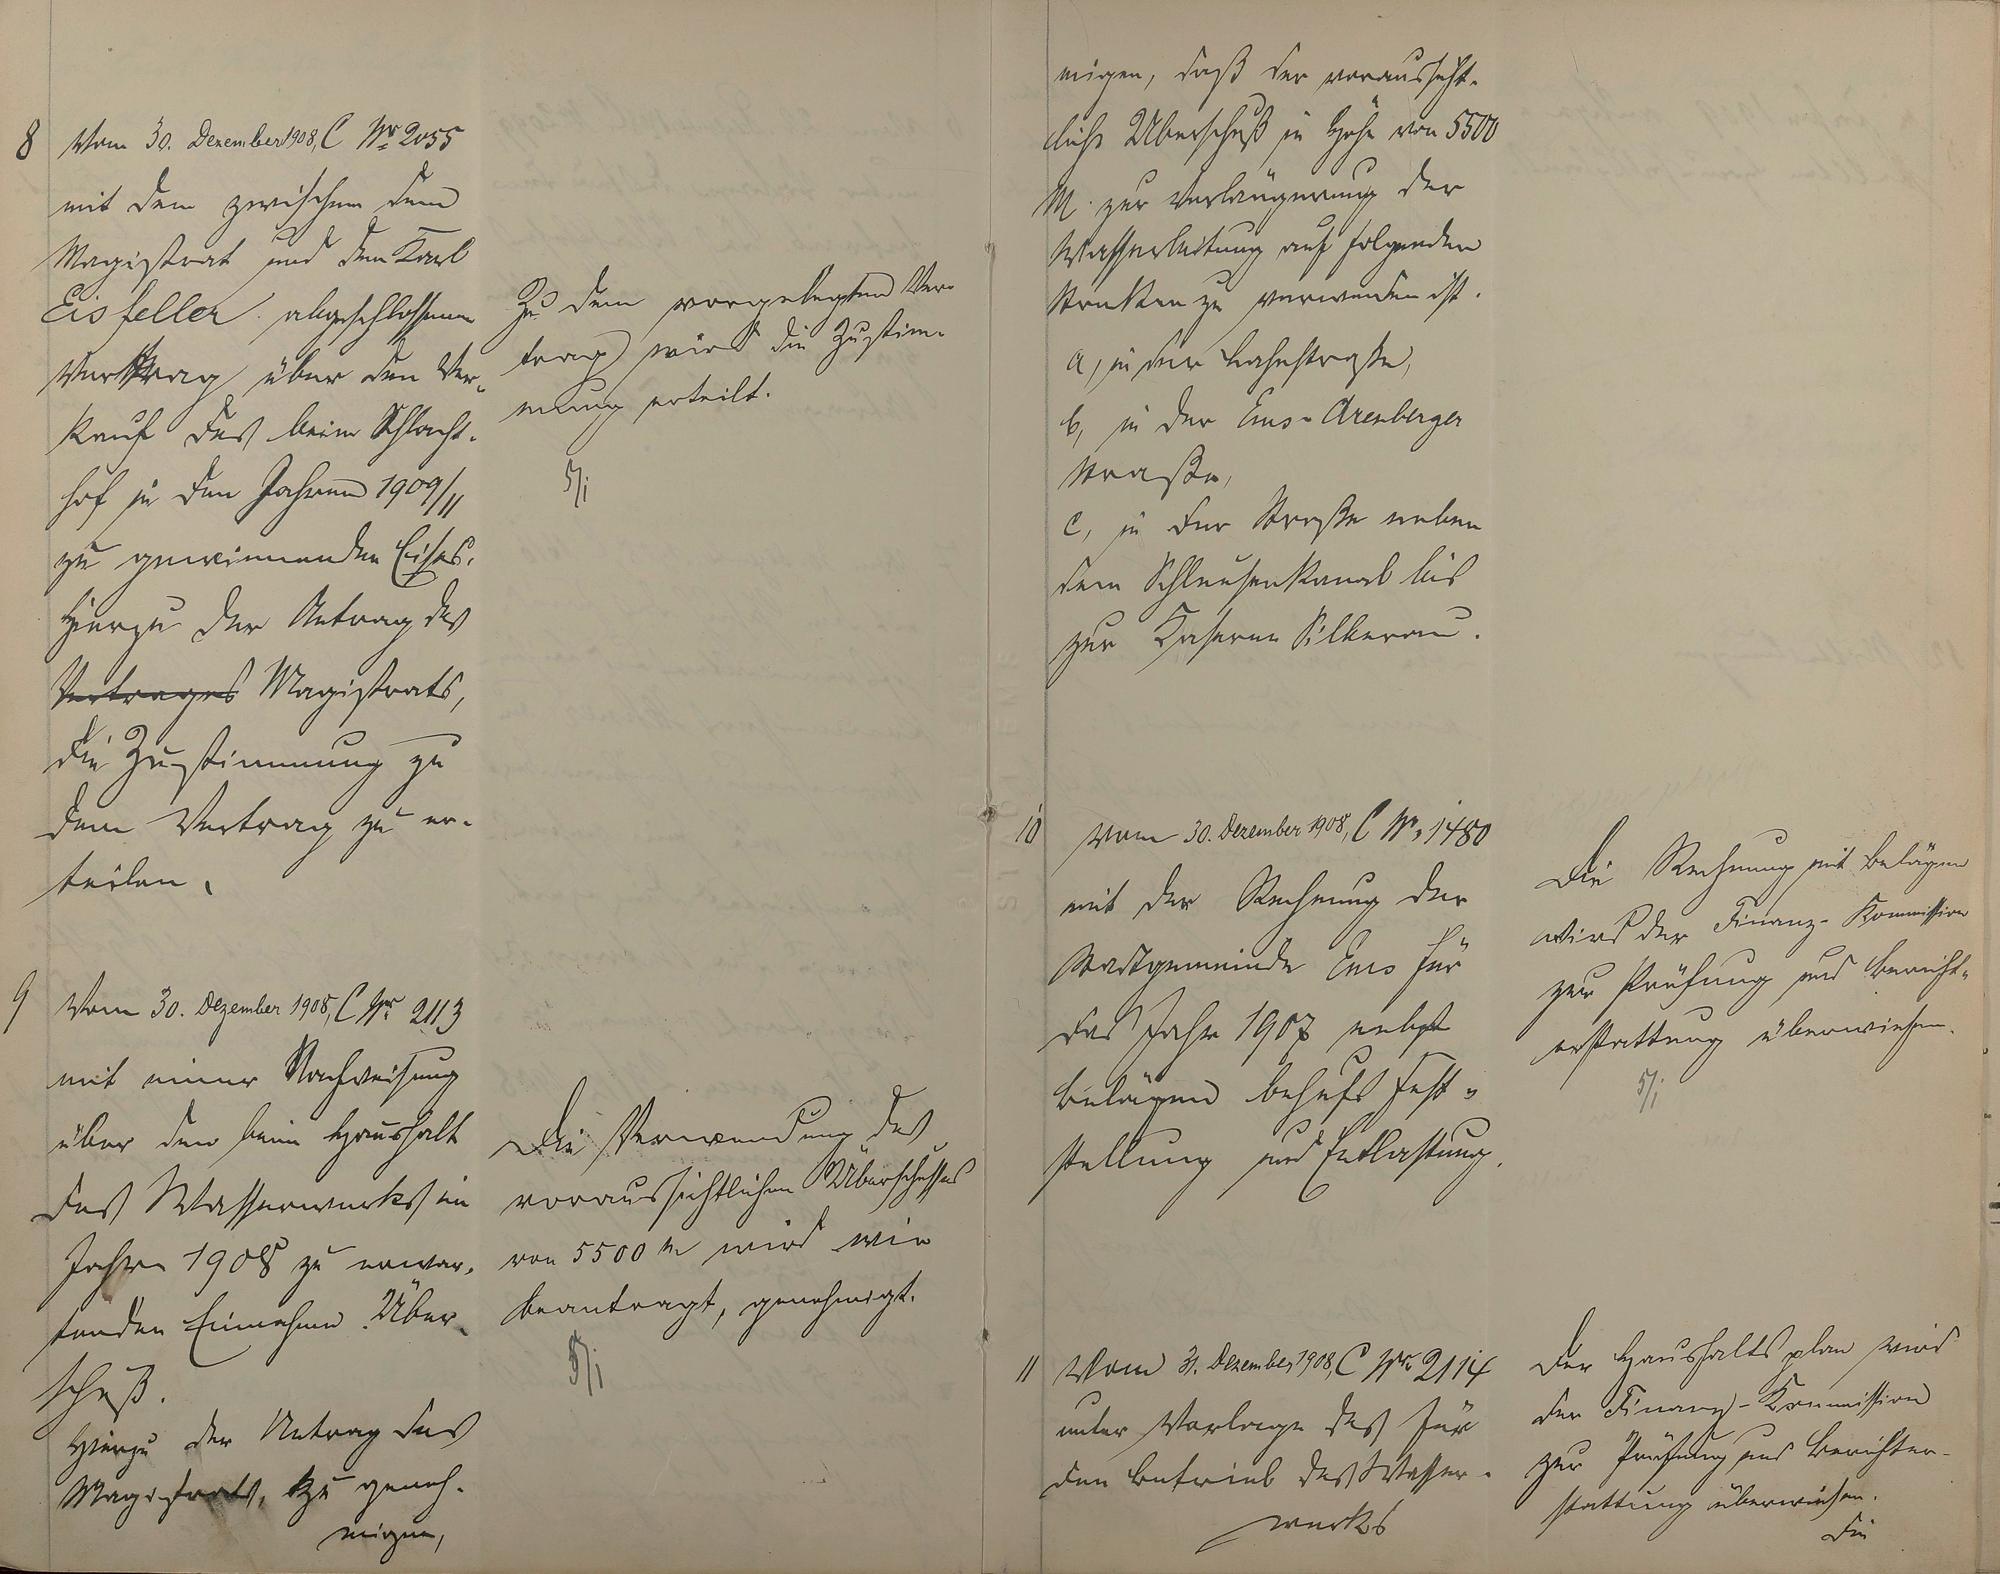 8 Vom 30. Dezember 1908, C Nr. 2055
mit dem zwischen dem
Magistrat und dem Karl
Eisfeller abgeschlossenen
Vertrag über den Ver-
kauf des beim Schlacht-
hof in den Jahren 1909/11
zu gewinnenden Eises.
Hierzu der Antrag des
Vertrages Magistrats,
die Zustimmung zu
dem Vertrag zu er-
teilen.
Zu dem vorgelegten Ver-
trag wird die Zustim-
mung erteilt.
5/1
9 Vom 30. Dezember 1908, C Nr. 2113
mit einer Nachweisung
über den beim Haushalt
des Wasserwerks im
Jahre 1908 zu erwar-
tenden Einnahme Über-
schuß.
Hierzu der Antrag des
Magistrats, zu geneh-
migen,
Die Verwendung des
voraussichtlichen Überschusses
von 5500 M wird wie
beantragt, genehmigt.
5/1
migen, daß der voraussicht-
liche Überschuß in Höhe von 5500
M. zur Verlängerung der
Wasserleitung auf folgenden
Strecken zu verwenden ist.
a, in der Lahnstraße,
b, in der Ems-Arenberger
Straße,
c, in der Straße neben
dem Schleusenkanal bis
zur Kaserne Silberau.
10 Vom 30. Dezember 1908, C Nr. 1480
mit der Rechnung der
Stadtgemeinde Ems für
das Jahr 1907 nebst
Belägen behufs Fest-
stellung und Entlastung.
Die Rechnung mit Belägen
wird der Finanz-Kommission
zur Prüfung und Bericht-
erstattung überwiesen.
5/1
11 Vom 31. Dezember 1908, C Nr. 2114
unter Vorlage des für
den Betrieb des Wasser-
werks
Der Haushaltsplan wird
der Finanz-Kommission
zur Prüfung und Berichter-
stattung überwiesen.
Die